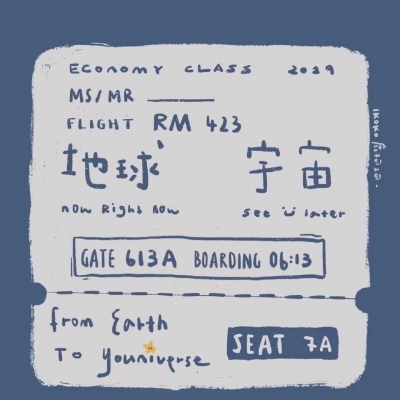 ECONOMY CLASS 2019
MS/MR
FLIGHT RM 423
地球 宇宙
now Right now see ü later
GATE 613A BOARDING 06:13
from Earth
To youniverse
SEAT 7A